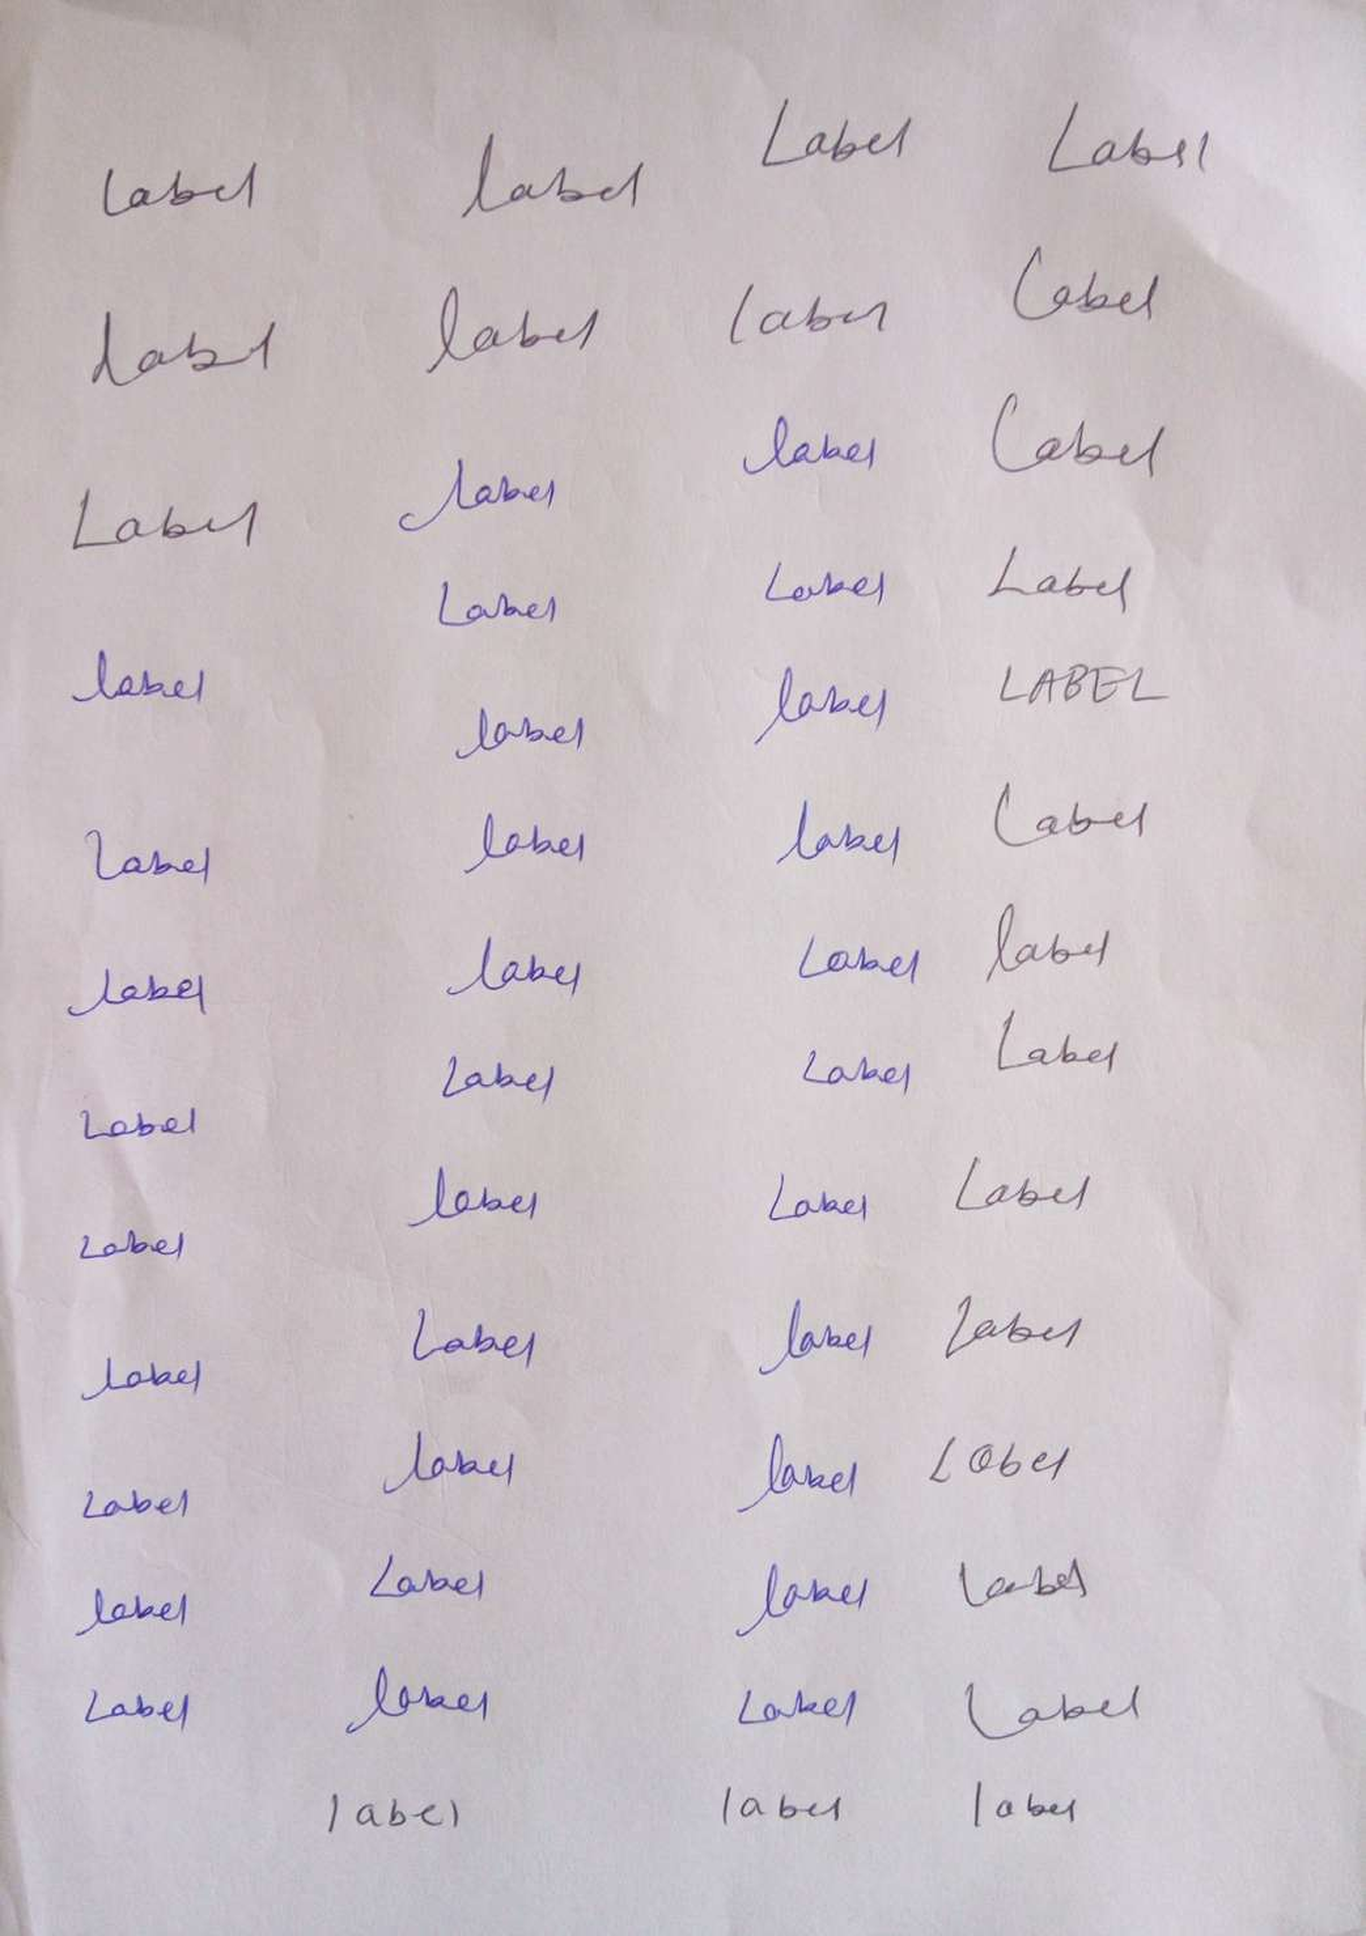 Label label Label Label
label label label Label
Label label label Label
label Label Label Label
Label label label LABEL
label label label Label
Label label Label label
Label Label Label Label
label label Label Label
Label Label label Label
label label label Label
Label Label label label
label Label Label
label label label